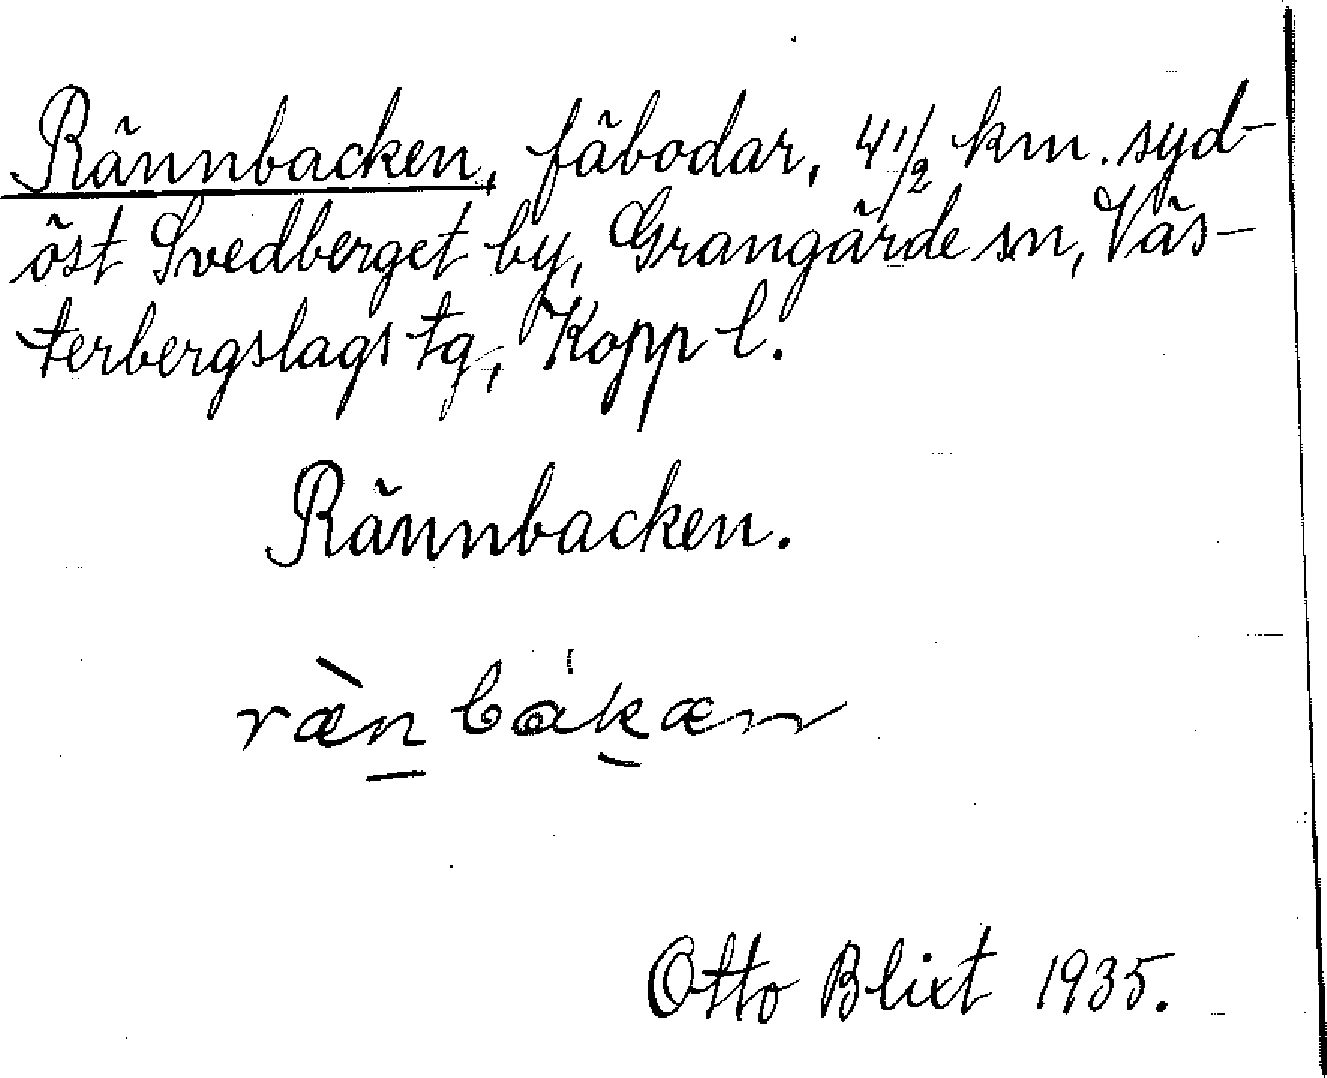 Rännbacken, fäbodar, 4 1/2 km. syd-
öst Svedberget by, Grangärde sn, Väs-
terbergslags tg, Kopp l.
Rännbacken.
ræ̀n bákæn
Otto Blixt 1935.